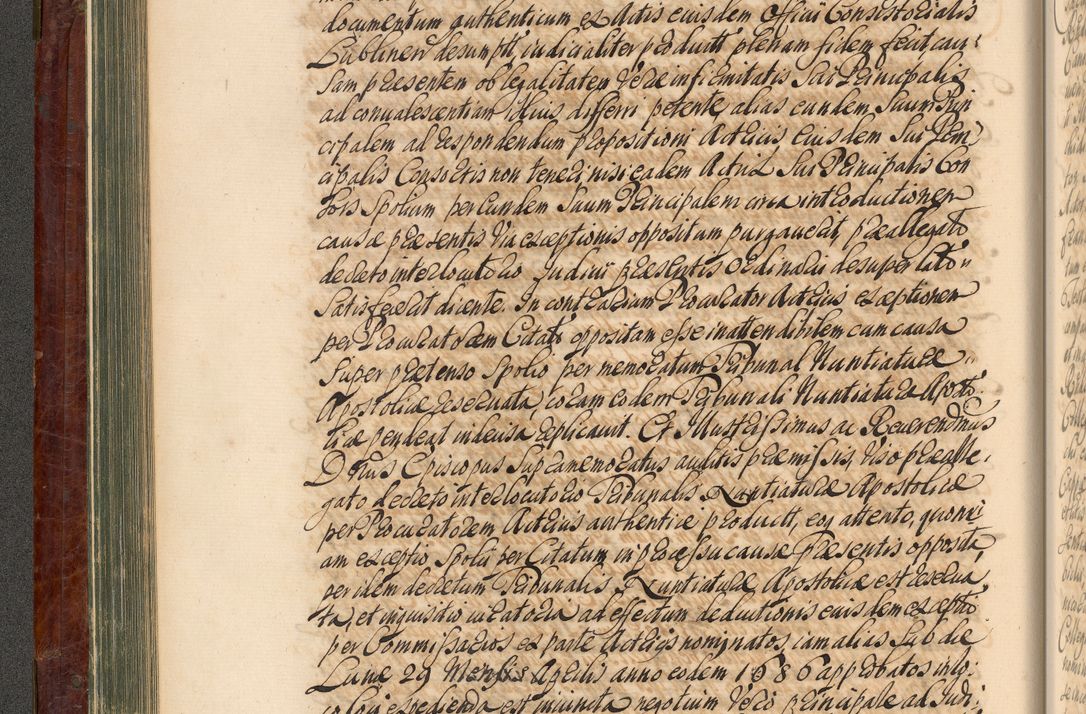 documentum authenticum ex Actis eiusdem Officii Consistorialis
Lublinen desumptt, iudicialiter productt plenam fidem fecit, cau:
sam praesentem ob legalitatem verae infirmitatis Sui Principalis
ad convalescentiam illius differri petente, alias eundem Suum Prin
cipalem ad respondendum propositioni Actricis, Eiusdem Sui Prin
cipalis Consortis non teneri, nisi eadem Actrix Sui Principalis Con
sors Spolium per Eundem Suum Principalem circa introductionem
causae praesentis via exceptionis oppositam purgaverit, praeallegato
decreto interlocutorio Iudicii praesentis Ordinarii desuper lato
satisfecerit dicente. In contrarium Procurator Actricis exceptionem
per Procuratorem Citati oppositam esse inattendibilem cum causa
super praetenso Spolio per memoratum Tribunal Nuntiaturae
Apostolicae reservata, coram eodem Tribunali Nuntiaturae Aposto:
licae pendeat indecisa replicavit. Et Illustrissimus ac Reverendimus
Dnus Episcopus supramemoratus auditis praemissis, viso praealle:
gato decreto interlocutorio Tribunalis Nuntiaturae Apostolicae
per Procuratorem Actricis authentice productt, eoq attento, quoni:
am exceptio Spolii per Citatum in processu causae Praesentis opposita,
per idem decretum Tribunalis Nuntiaturae Apostolicae est reserva
ta, et inquisitio iuratoria ad effectum deductionis eiusdem exceptio
per Commissarios ex parte Actricis nominatos, iam alias sub die
Lunae 29 Mensis Aprilis anno eodem 1686 approbatos in lo:
co loci expedienda est iniuncta negotium vero principale ad Iudi